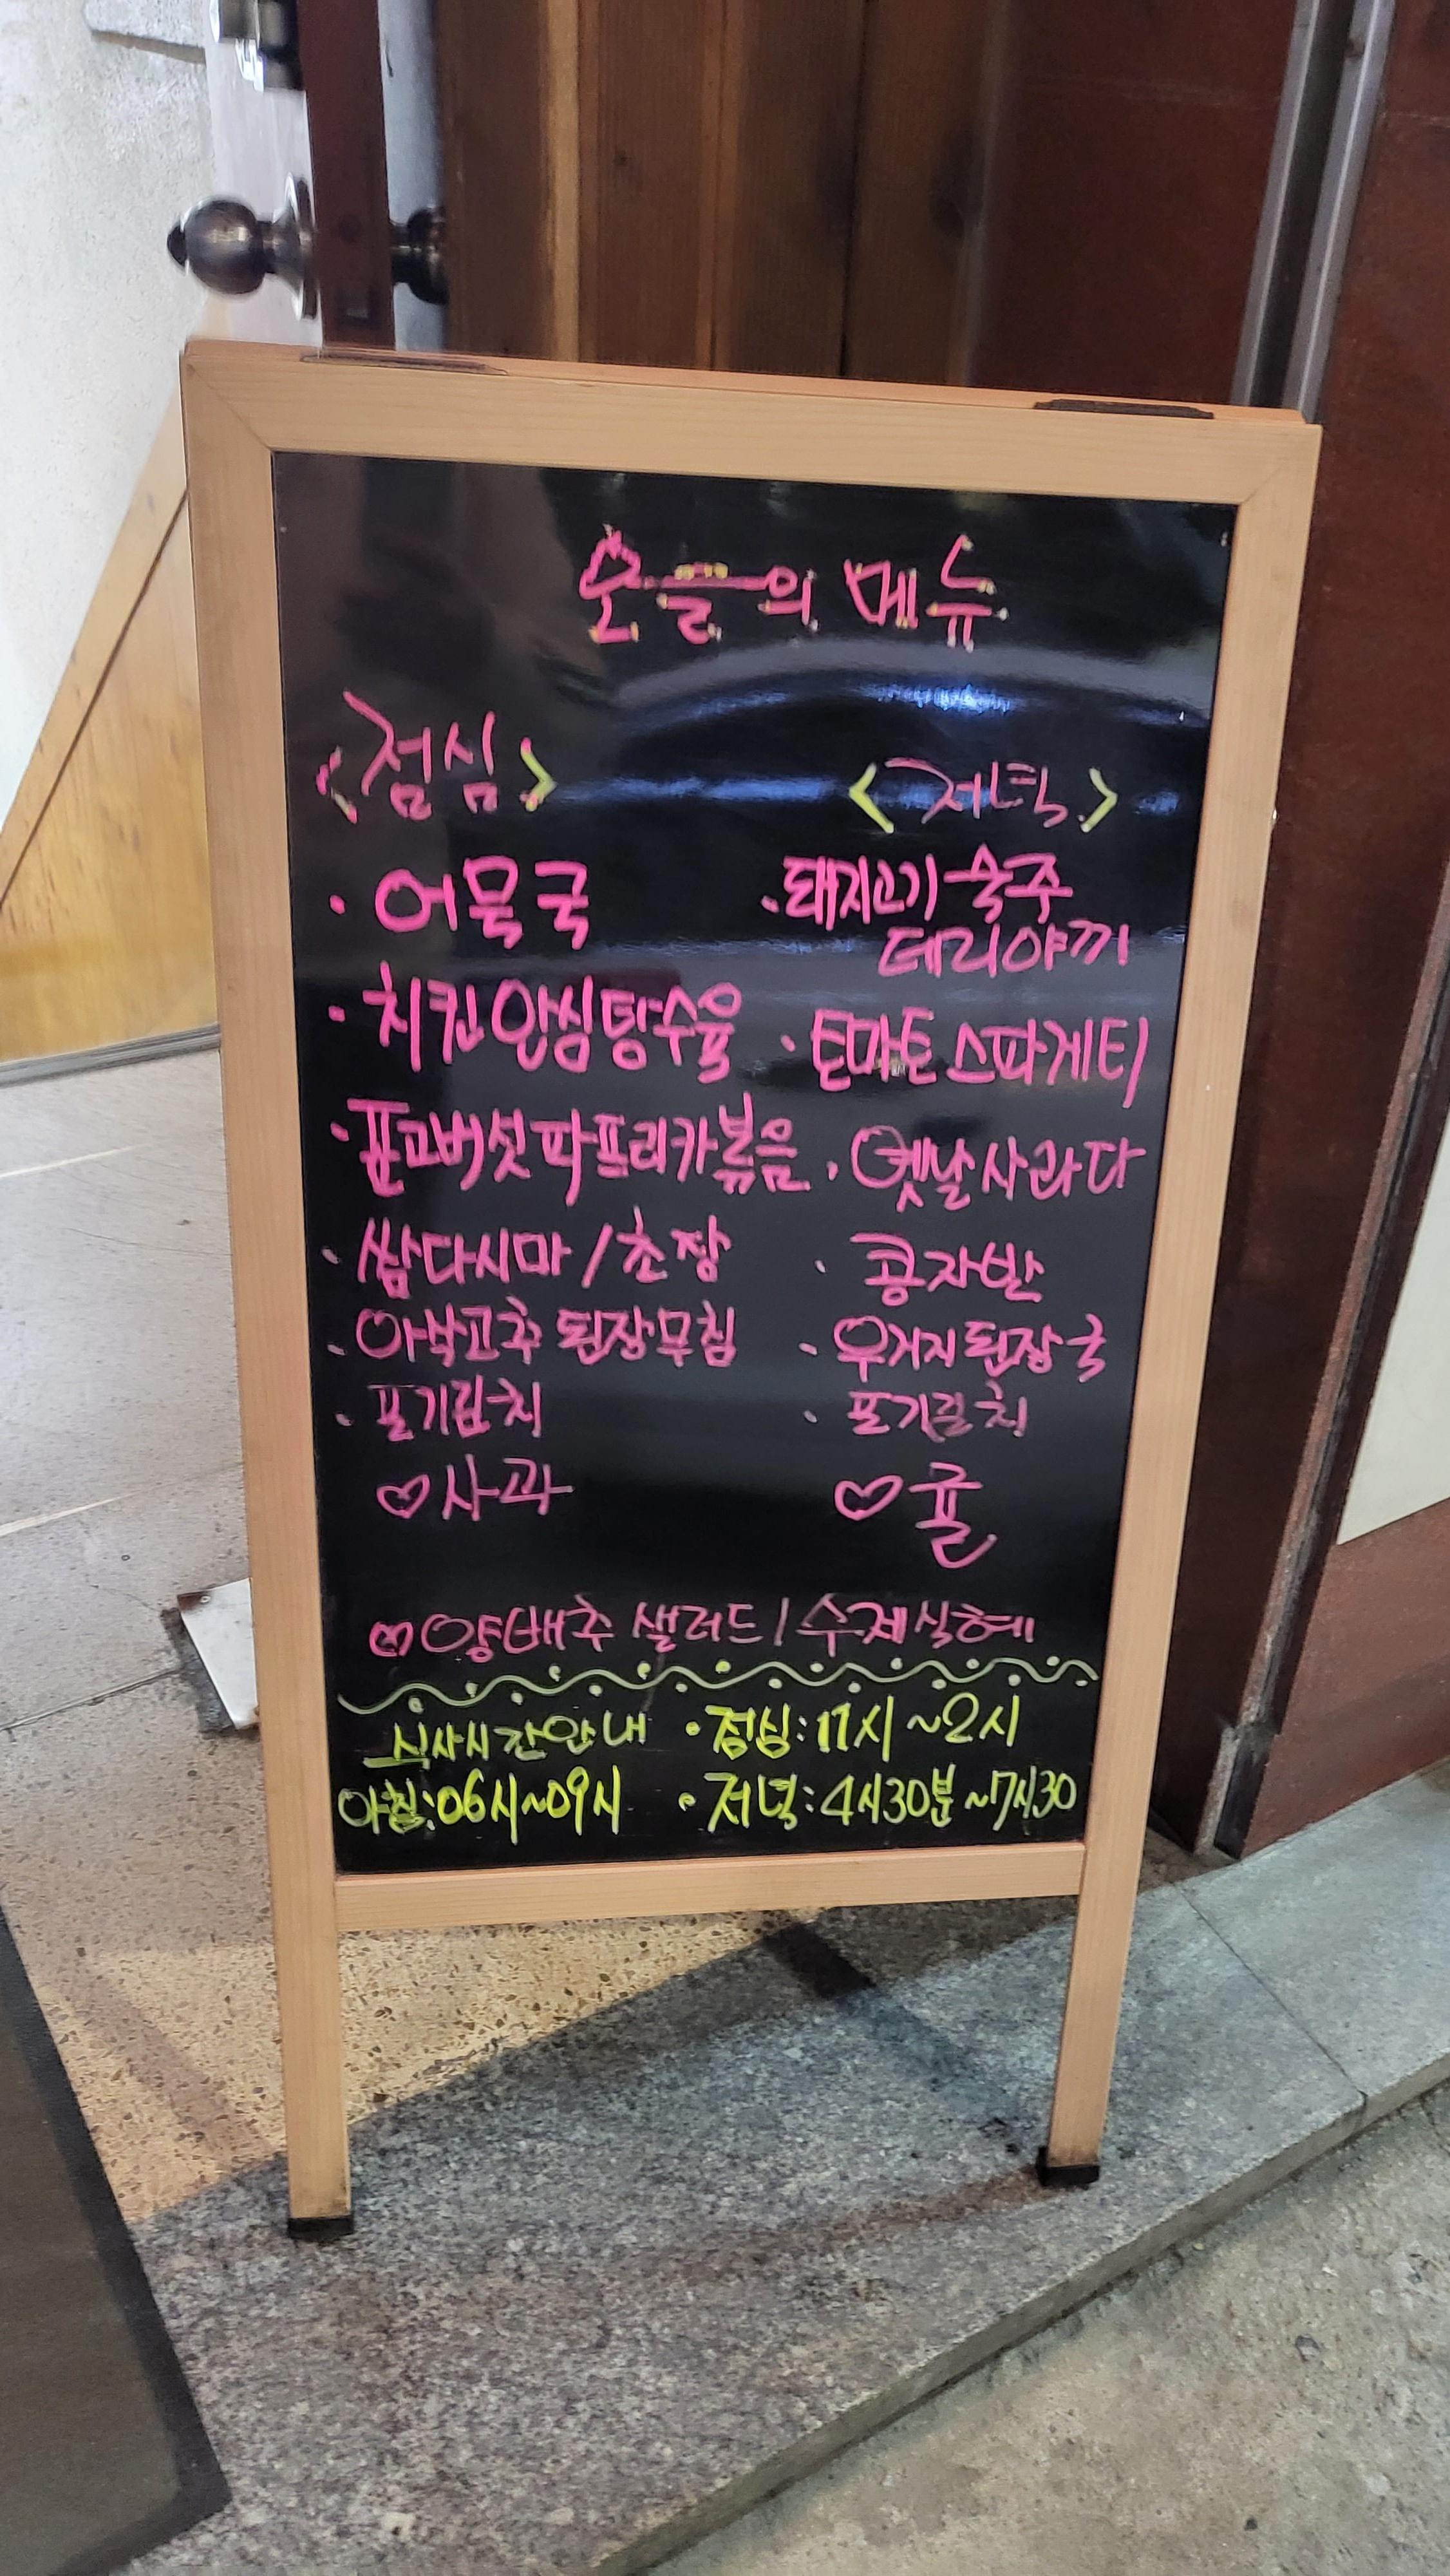 오늘의 메뉴
<점심>
· 어묵국
· 치킨안심탕수육
· 표고버섯파프리카볶음
· 쌈다시마/초장
· 아삭고추 된장무침
· 포기김치
♡ 사과
<저녁>
· 돼지고기 숙주
데리야끼
· 토마토 스파게티
· 옛날사라다
· 콩자반
· 우거지된장국
· 포기김치
♡ 귤
♡ 양배추 샐러드 / 수제식혜
식사시간안내
아침:06시~09시
· 점심: 11시~2시
· 저녁: 4시30분~7시30